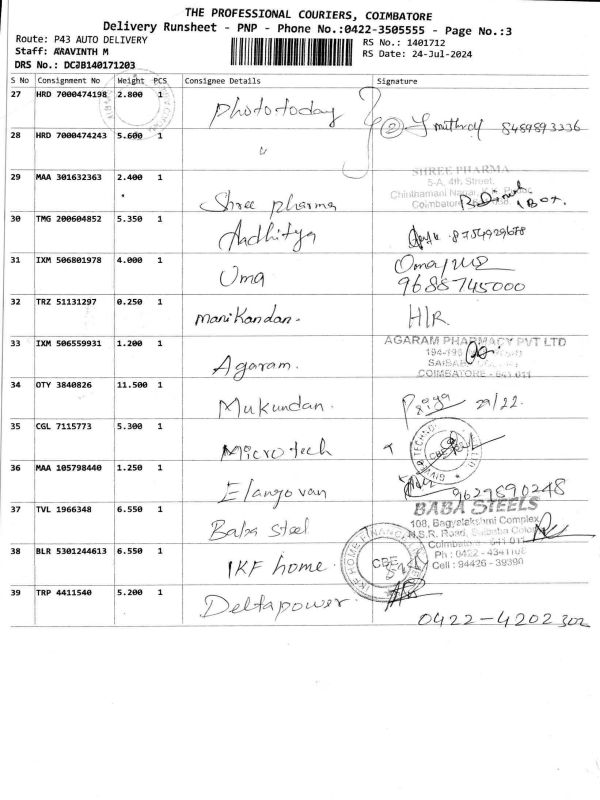 THE PROFESSIONAL COURIERS, COIMBATORE
Delivery Runsheet - PNP - Phone No.:0422-3505555 - Page No.:3
Route: P43 AUTO DELIVERY
RS No.: 1401712
Staff: ARAVINTH M
RS Date: 24-Jul-2024
DRS No.: DCJB140171203
S No Consignment No Weight PCS Consignee Details Signature
27 HRD 7000474198 2.800 1 Phototoday 8489893336
28 HRD 7000474243 5.600 1 "
SHREE PHARMA
5-A, 4th Street,
29 MAA 301632363 2.400 1 Shree pharma
Coimbatore
30 TMG 200604852 5.350 1 Aadhitya 8754929678
31 IXM 506801978 4.000 1 Uma
9688745000
32 TRZ 51131297 0.250 1 Manikandan. H/R
33 IXM 506559931 1.200 1 Agaram.
AGARAM PHARMACY PVT LTD
COIMBATORE - 641 011
34 OTY 3840826 11.500 1 Mukundan. Priya 29/22.
35 CGL 7115773 5.300 1 Microtech
36 MAA 105798440 1.250 1 Elangovan 9629890248
37 TVL 1966348 6.550 1 Baba steel
BABA STEELS
108, Bagyalakshmi Complex
N.S.R. Road, Saibaba Colony
Coimbatore - 641 011
Cell : 94426 - 39390
38 BLR 5301244613 6.550 1 IKF home.
IKF HOME FINANCE
CBE
39 TRP 4411540 5.200 1 Deltapower.
0422-4202302